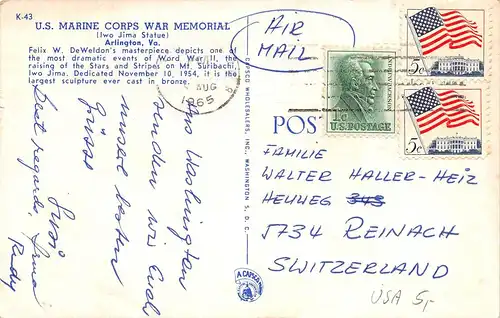 K-43
U.S. MARINE CORPS WAR MEMORIAL
(Iwo Jima Statue)
Arlington, Va.
Felix W. DeWeldon's masterpiece depicts one of
the most dramatic events of Word War II, the
raising of the Stars and Stripes on Mt. Suribachi,
Iwo Jima. Dedicated November 10, 1954, it is the
largest sculpture ever cast in bronze.
Aus Washington
senden wir Euch
unsere besten
Grüsse
Best regards, Irma
Rudy
CAPSCO WHOLESALERS, INC., WASHINGTON 5, D.C.
A CAPSCO
AUG
1965
AIR
MAIL
1c
U.S. POSTAGE
5c
5c
POS
FAMILIE
WALTER HALLER-HEIZ
HEUWEG 343
5734 REINACH
SWITZERLAND
USA 5,-